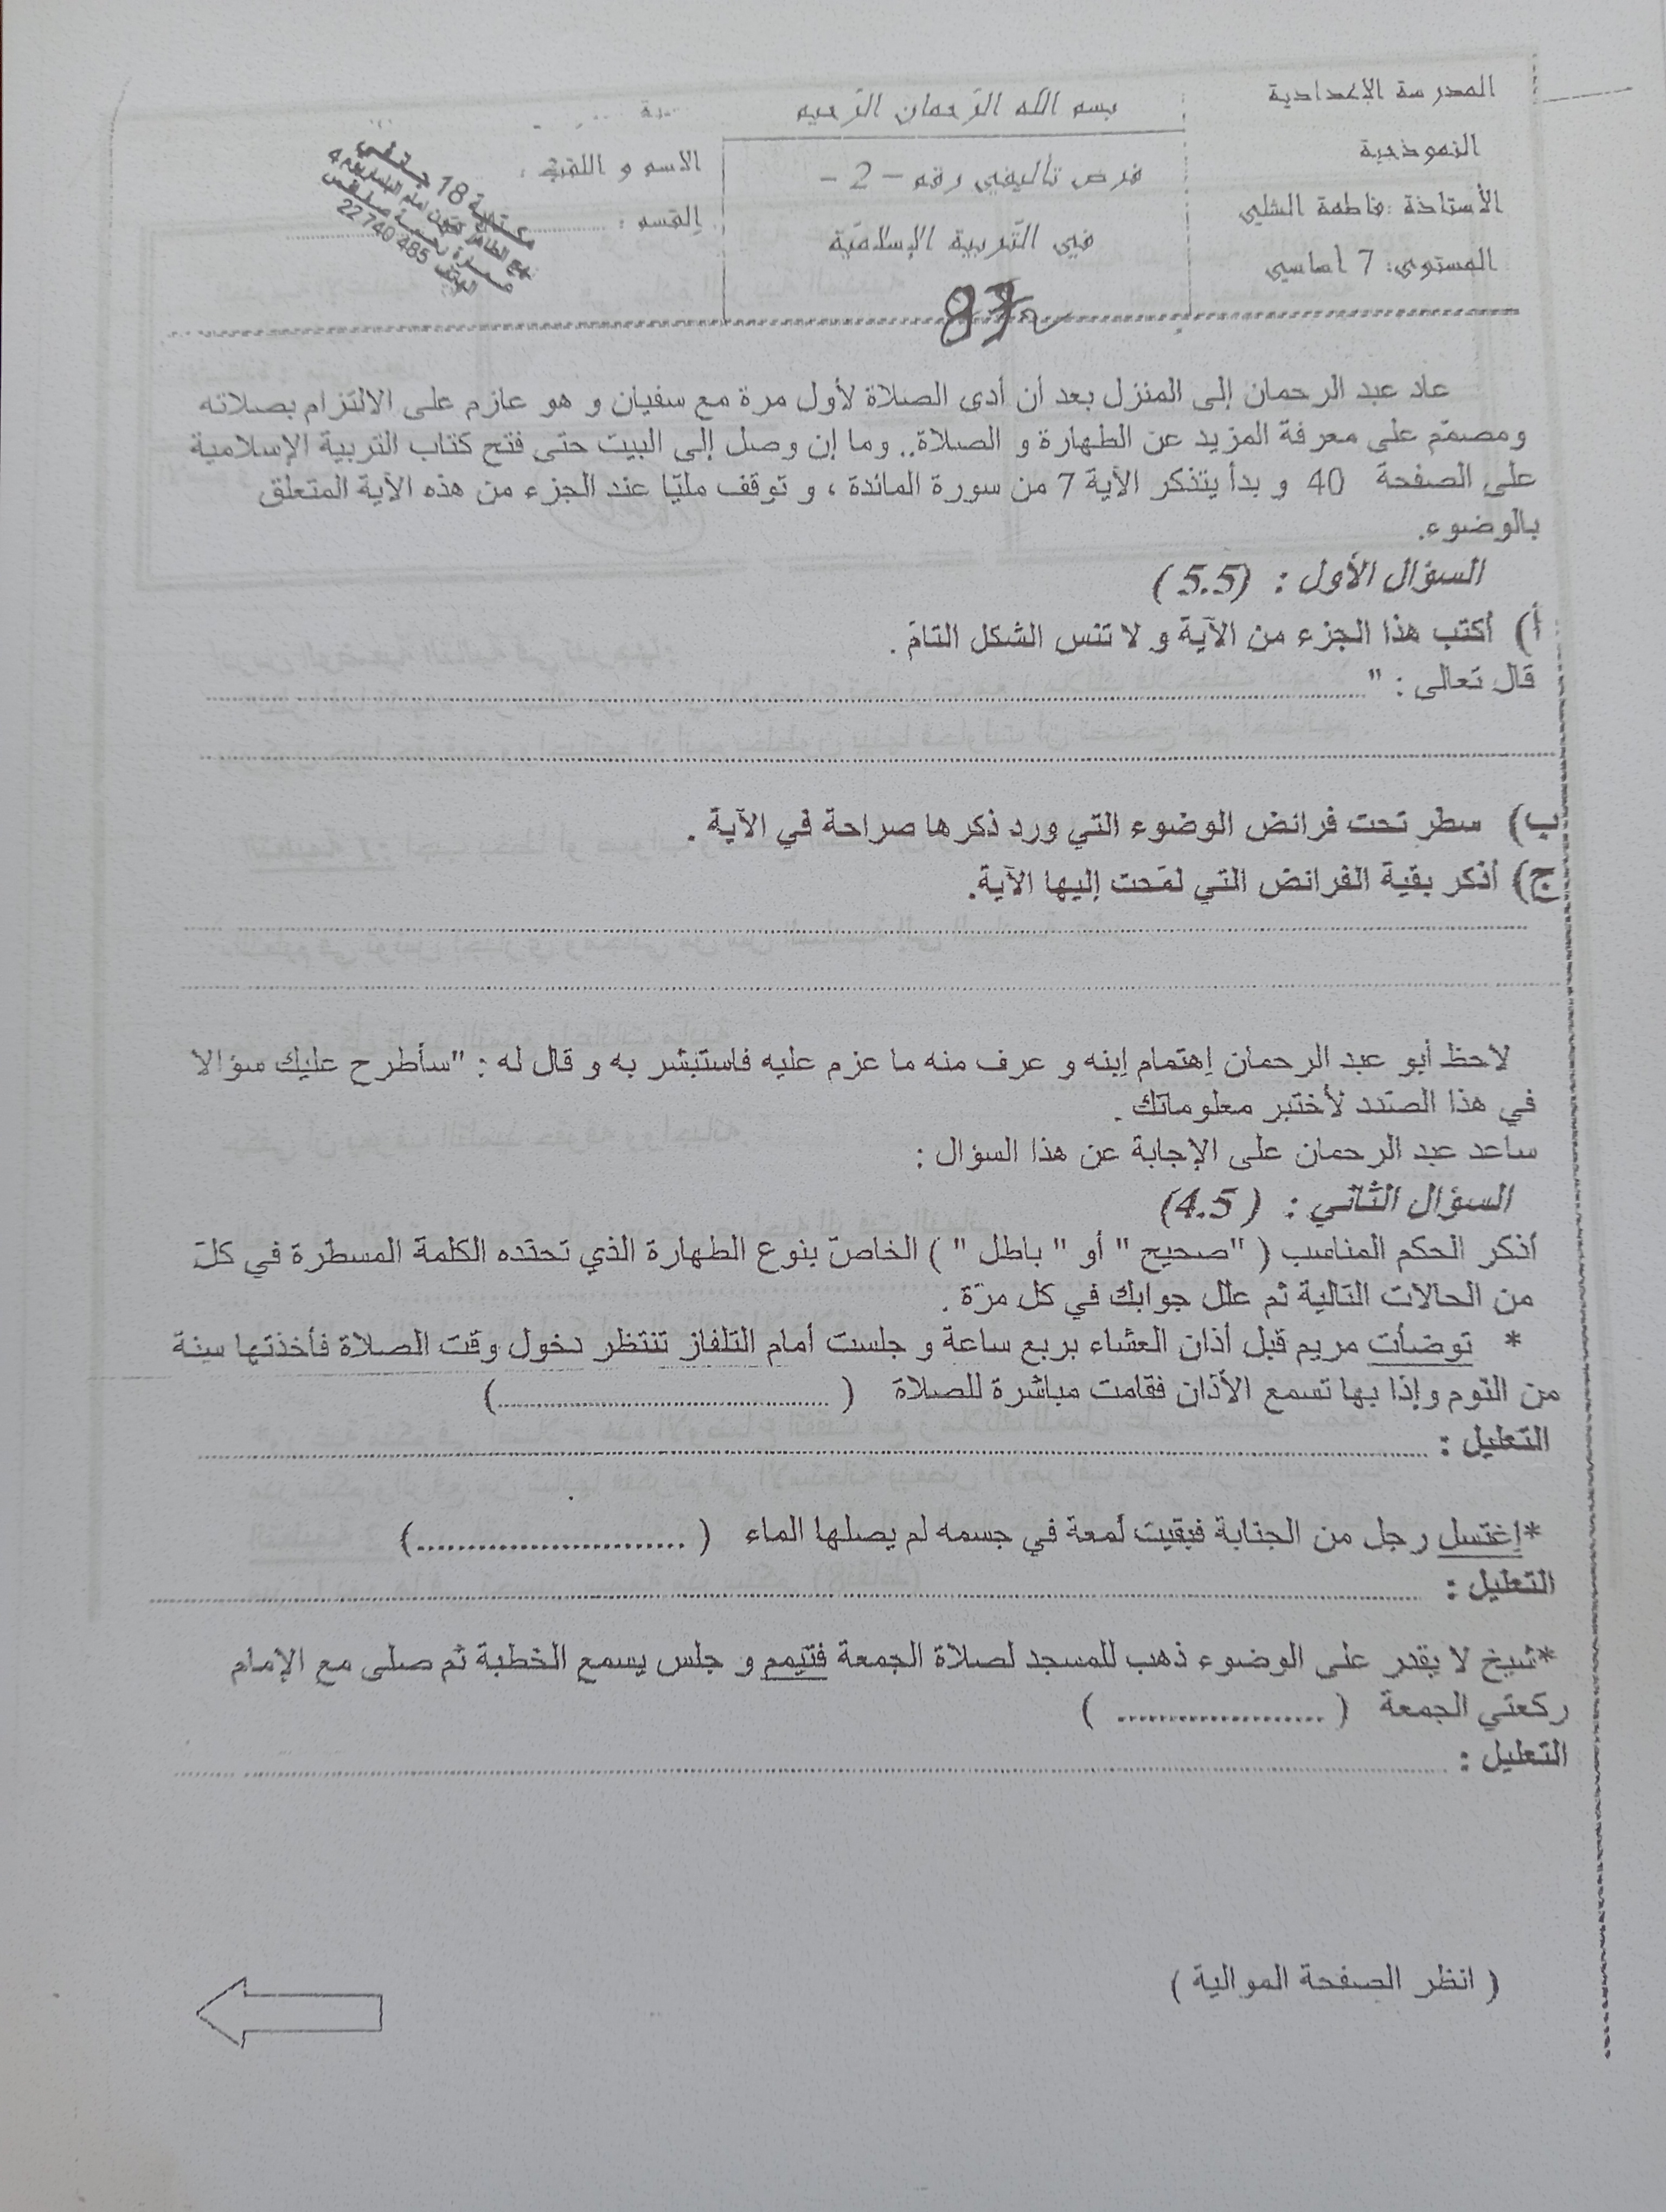 المدرسة الإعدادية
النموذجية
الأستاذة : فاطمة الشلي
المستوى: 7 أساسي
بسم الله الرّحمان الرّحيم
فرض تأليفي رقم – 2 –
في التّربية الإسلاميّة
الاسم و اللقب :
القسم : ........................
مكتبة 18 جانفي
22 740 485
عاد عبد الرحمان إلى المنزل بعد أن أدى الصلاة لأول مرة مع سفيان و هو عازم على الالتزام بصلاته
ومصمّم على معرفة المزيد عن الطهارة و الصلاة.. وما إن وصل إلى البيت حتى فتح كتاب التربية الإسلامية
على الصفحة 40 و بدأ يتذكر الآية 7 من سورة المائدة ، و توقف مليّا عند الجزء من هذه الآية المتعلق
بالوضوء.
السؤال الأول : (5.5 )
أ) أكتب هذا الجزء من الآية و لا تنس الشكل التامّ .
قال تعالى : "........................
........................
ب) سطر تحت فرائض الوضوء التي ورد ذكرها صراحة في الآية .
ج) أذكر بقية الفرائض التي لمّحت إليها الآية.
........................
........................
لاحظ أبو عبد الرحمان إهتمام إبنه و عرف منه ما عزم عليه فاستبشر به و قال له : "سأطرح عليك سؤالا
في هذا الصّدد لأختبر معلوماتك .
ساعد عبد الرحمان على الإجابة عن هذا السؤال :
السؤال الثاني : ( 4.5)
أذكر الحكم المناسب ( "صحيح " أو " باطل " ) الخاصّ بنوع الطهارة الذي تحدّده الكلمة المسطّرة في كلّ
من الحالات التالية ثم علل جوابك في كل مرّة .
* توضأت مريم قبل أذان العشاء بربع ساعة و جلست أمام التلفاز تنتظر دخول وقت الصلاة فأخذتها سِنة
من النوم وإذا بها تسمع الأذان فقامت مباشرة للصلاة ( ........................)
التعليل : ........................
*إغتسل رجل من الجنابة فبقيت لمعة في جسمه لم يصلها الماء ( ........................)
التعليل : ........................
*شيخ لا يقدر على الوضوء ذهب للمسجد لصلاة الجمعة فتيمم و جلس يسمع الخطبة ثم صلى مع الإمام
ركعتي الجمعة ( .................... )
التعليل : ........................
( انظر الصفحة الموالية )